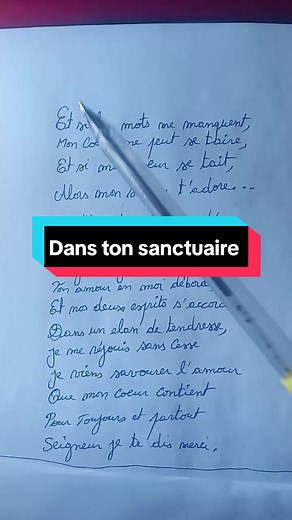 Et si mots me manquent,
Mon ne peut se taire,
Et si se tait,
Alors mon t'adore...
Dans ton sanctuaire
Ton amour en moi
Et nos deux esprits
Dans un elan de tendresse,
je me réjouis sans cesse
je viens savourer l'amour
Que mon coeur contient
Pour Toujours et partout
Seigneur je te dis merci.